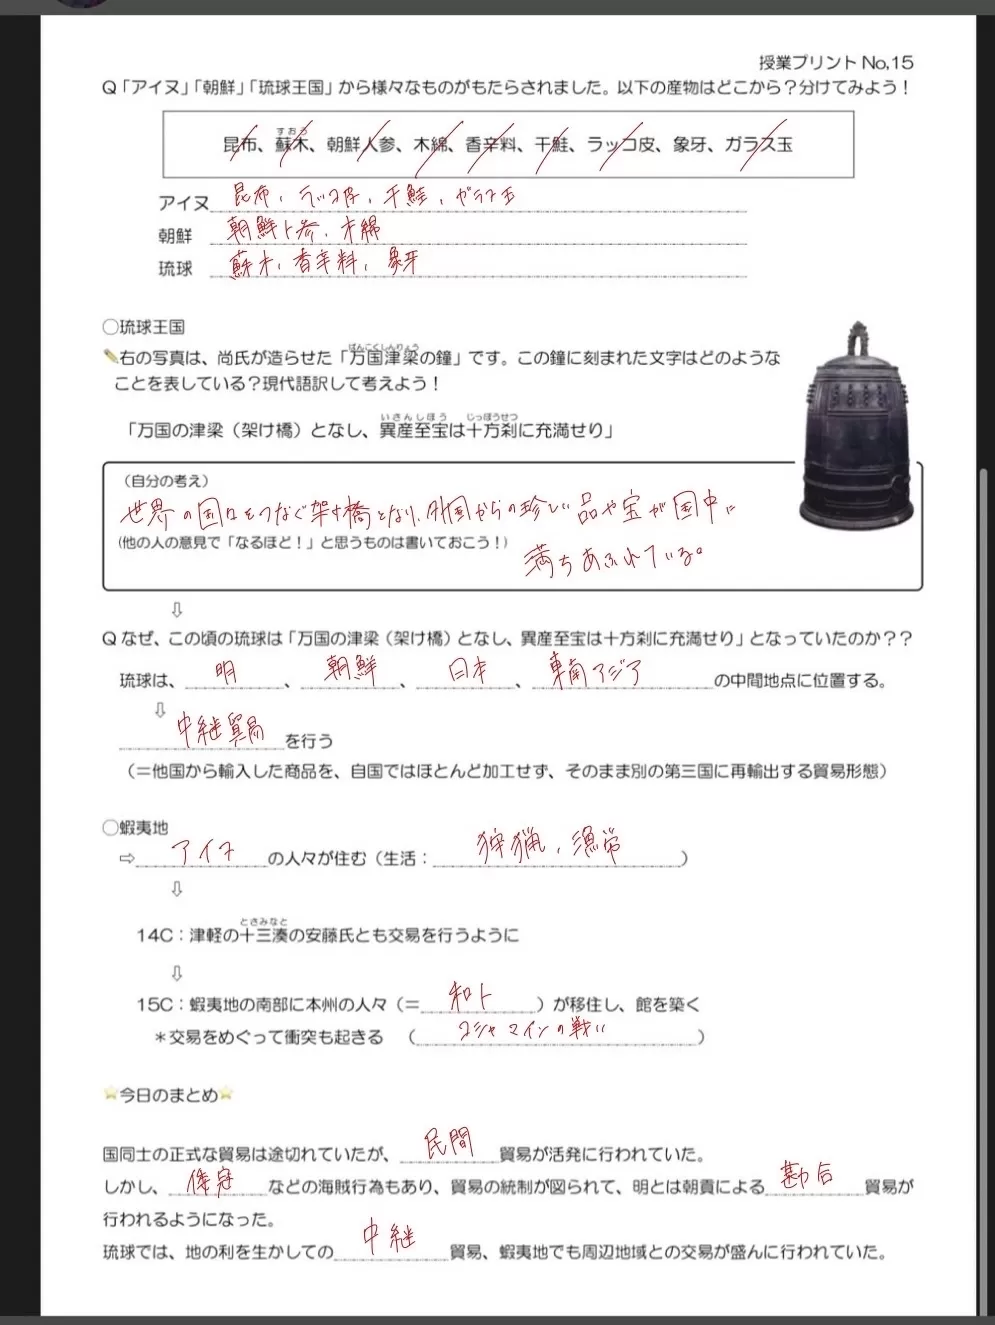 授業プリント No,15
Q「アイヌ」「朝鮮」「琉球王国」から様々なものがもたらされました。以下の産物はどこから？分けてみよう！
すおう
昆布、蘇木、朝鮮人参、木綿、香辛料、干鮭、ラッコ皮、象牙、ガラス玉
アイヌ 昆布、ラッコ皮、干鮭、ガラス玉
朝鮮 朝鮮人参、木綿
琉球 蘇木、香辛料、象牙
○琉球王国
ばんこくしんりょう
右の写真は、尚氏が造らせた「万国津梁の鐘」です。この鐘に刻まれた文字はどのような
ことを表している？現代語訳して考えよう！
いさんしほう じっぽうせつ
「万国の津梁（架け橋）となし、異産至宝は十方刹に充満せり」
（自分の考え）
世界の国々をつなぐ架け橋となり、外国からの珍しい品や宝が国中に
（他の人の意見で「なるほど！」と思うものは書いておこう！）
満ちあふれている。
⇩
Q なぜ、この頃の琉球は「万国の津梁（架け橋）となし、異産至宝は十方刹に充満せり」となっていたのか？？
琉球は、明、朝鮮、日本、東南アジアの中間地点に位置する。
⇩
中継貿易を行う
（＝他国から輸入した商品を、自国ではほとんど加工せず、そのまま別の第三国に再輸出する貿易形態）
○蝦夷地
⇨アイヌの人々が住む（生活：狩猟、漁労）
⇩
とさみなと
14C：津軽の十三湊の安藤氏とも交易を行うように
⇩
15C：蝦夷地の南部に本州の人々（＝和人）が移住し、館を築く
＊交易をめぐって衝突も起きる （コシャマインの戦い）
今日のまとめ
国同士の正式な貿易は途切れていたが、民間貿易が活発に行われていた。
しかし、倭寇などの海賊行為もあり、貿易の統制が図られて、明とは朝貢による勘合貿易が
行われるようになった。
琉球では、地の利を生かしての中継貿易、蝦夷地でも周辺地域との交易が盛んに行われていた。